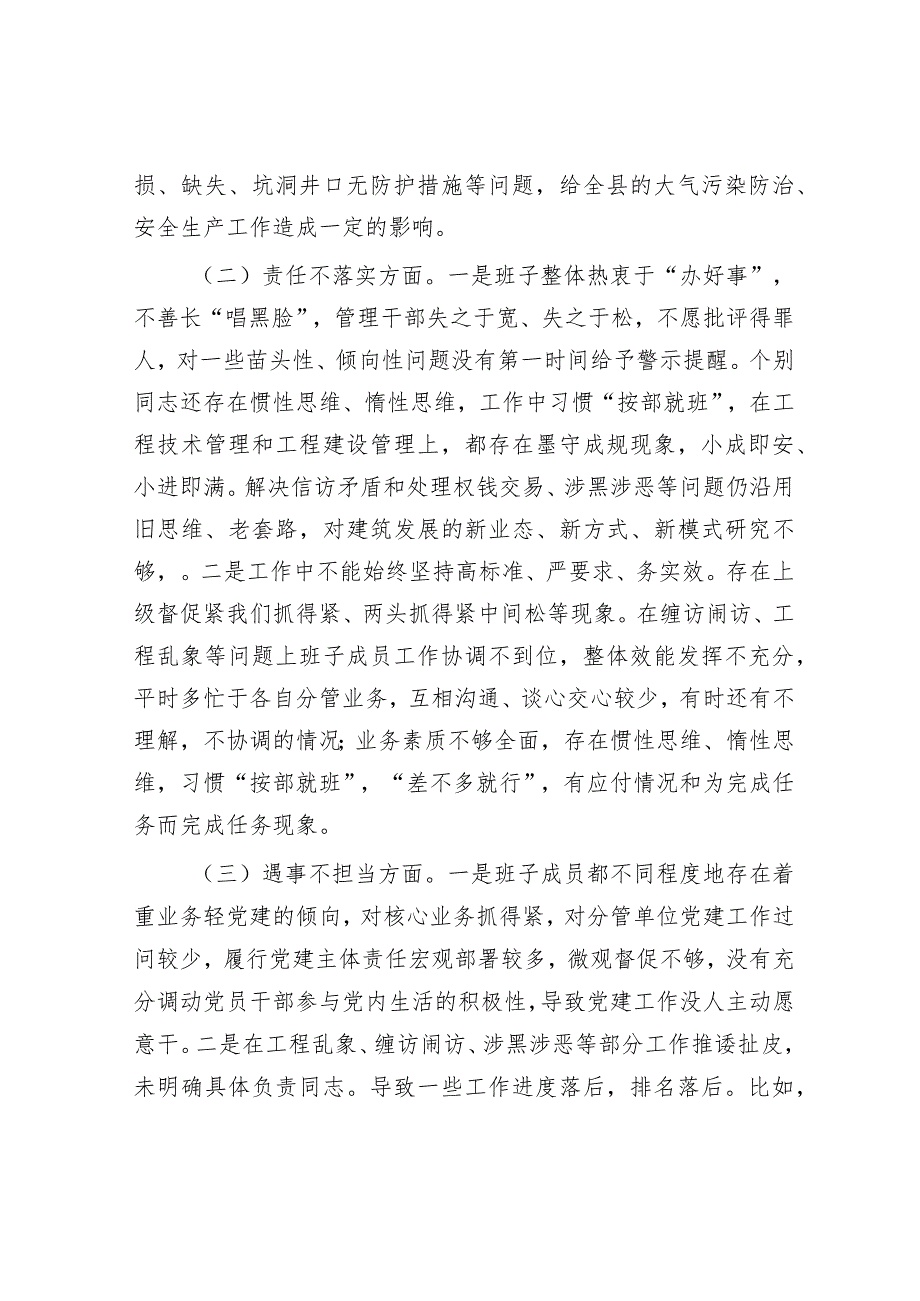 损、缺失、坑洞井口无防护措施等问题，给全县的大气污染防治、
安全生产工作造成一定的影响。
（二）责任不落实方面。一是班子整体热衷于“办好事”，
不善长“唱黑脸”，管理干部失之于宽、失之于松，不愿批评得罪
人，对一些苗头性、倾向性问题没有第一时间给予警示提醒。个别
同志还存在惯性思维、惰性思维，工作中习惯“按部就班”，在工
程技术管理和工程建设管理上，都存在墨守成规现象，小成即安、
小进即满。解决信访矛盾和处理权钱交易、涉黑涉恶等问题仍沿用
旧思维、老套路，对建筑发展的新业态、新方式、新模式研究不
够，。二是工作中不能始终坚持高标准、严要求、务实效。存在上
级督促紧我们抓得紧、两头抓得紧中间松等现象。在缠访闹访、工
程乱象等问题上班子成员工作协调不到位，整体效能发挥不充分，
平时多忙于各自分管业务，互相沟通、谈心交心较少，有时还有不
理解，不协调的情况；业务素质不够全面，存在惯性思维、惰性思
维，习惯“按部就班”，“差不多就行”，有应付情况和为完成任
务而完成任务现象。
（三）遇事不担当方面。一是班子成员都不同程度地存在着
重业务轻党建的倾向，对核心业务抓得紧，对分管单位党建工作过
问较少，履行党建主体责任宏观部署较多，微观督促不够，没有充
分调动党员干部参与党内生活的积极性，导致党建工作没人主动愿
意干。二是在工程乱象、缠访闹访、涉黑涉恶等部分工作推诿扯皮，
未明确具体负责同志。导致一些工作进度落后，排名落后。比如，